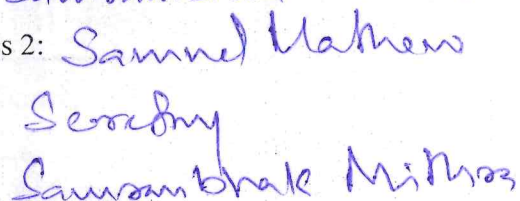 s 2: Samuel Mathew
Secretary
Samrambhak Mithra